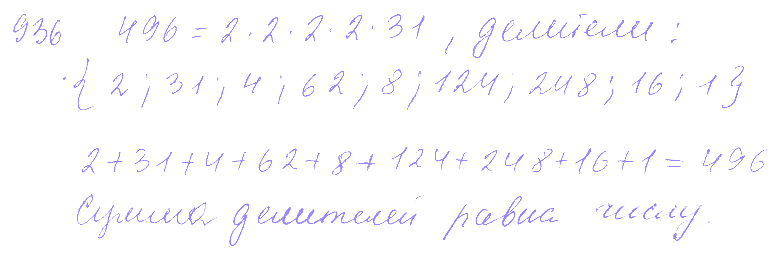 936 496 = 2 · 2 · 2 · 2 · 31 , делители :
{ 2 ; 31 ; 4 ; 62 ; 8 ; 124 ; 248 ; 16 ; 1 }
2 + 31 + 4 + 62 + 8 + 124 + 248 + 16 + 1 = 496
Сумма делителей равна числу.